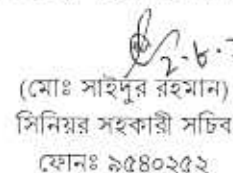 ২.৮.
(মোঃ সাইদুর রহমান)
সিনিয়র সহকারী সচিব
ফোনঃ ৯৫৪০২৫২